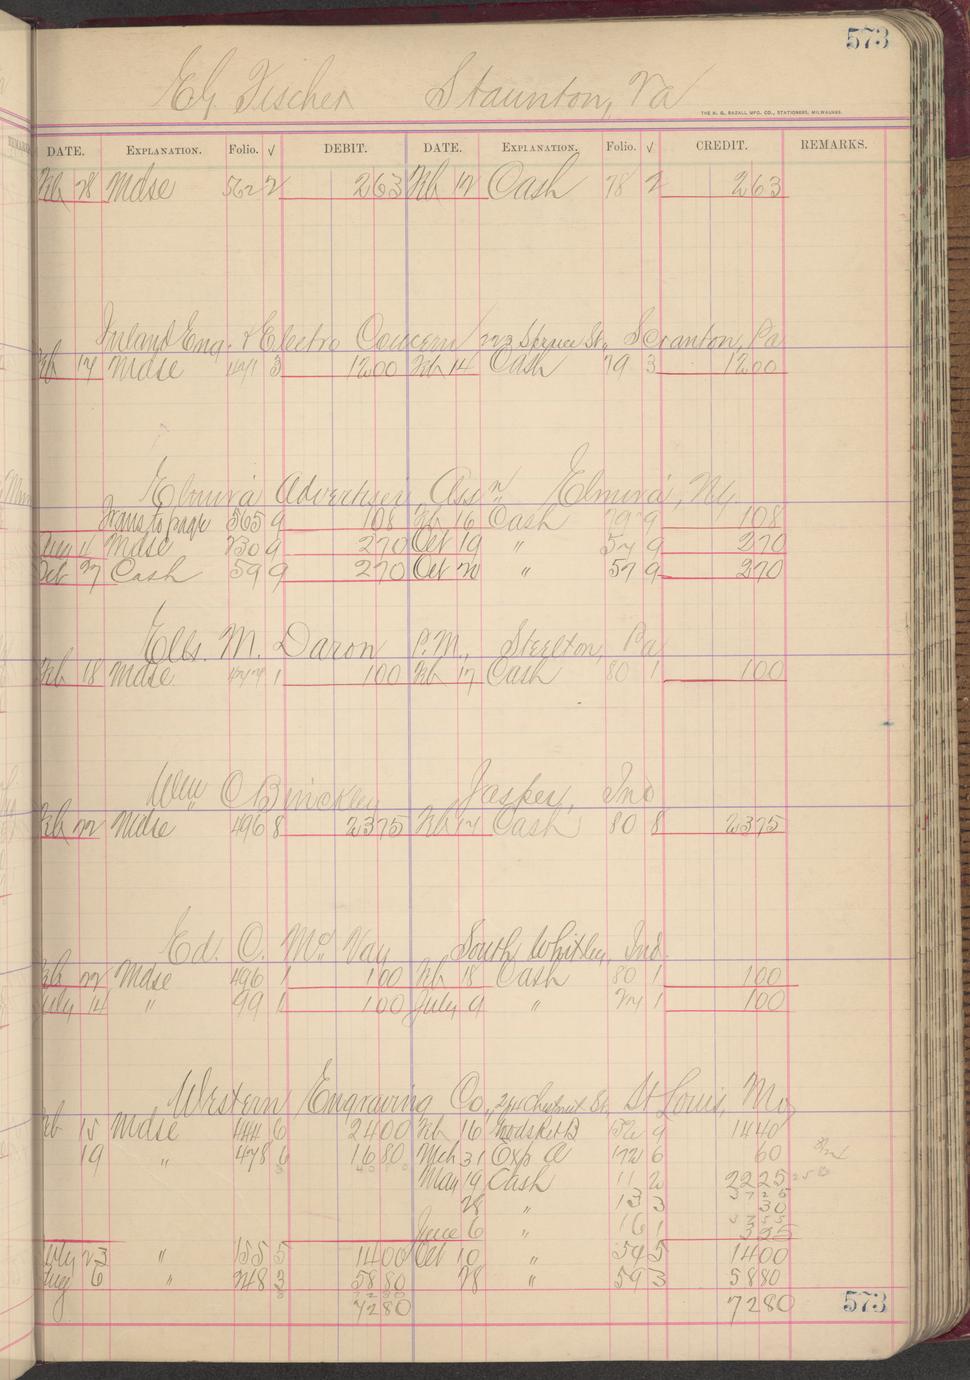 573
E.G. Fischer Staunton, Va
THE H. G. RAZALL MFG. CO., STATIONERS, MILWAUKEE.
DATE. EXPLANATION. Folio. √ DEBIT. DATE. EXPLANATION. Folio. √ CREDIT. REMARKS.
Feb 28 Mdse 562 2 263 Feb 12 Cash 78 2 263
Inland Eng. & Electro Concern 223 Spruce St., Scranton, Pa
Feb 17 Mdse 3 1200 Feb 14 Cash 79 3 1200
Elmira Advertiser Ass'n Elmira, NY.
Trans to page 565 9 108 Feb 16 Cash 79 9 108
Mdse 230 9 270 Oct 19 " 57 9 270
Oct 27 Cash 59 9 270 Oct 20 " 57 9 270
Ells. M. Daron P.M., Steelton, Pa
Feb 18 Mdse 477 1 100 Feb 17 Cash 80 1 100
Wm O Binckley Jasper, Ind
Feb 22 Mdse 496 8 2375 Feb 17 Cash 80 8 2375
Ed. O. McVay South Whitley, Ind.
Feb 22 Mdse 496 1 100 Feb 18 Cash 80 1 100
July 14 " 99 1 100 July 9 " 27 1 100
Western Engraving Co., Chestnut St, St Louis, Mo
Feb 15 Mdse 444 6 2400 Feb 16 9 1440
19 " 478 6 1680 Mch 31 Exp a 172 6 60
May 19 Cash 11 2 2225
28 " 13 3 30
June 6 " 16 1 325
July 23 " 155 5 1400 Oct 10 " 54 5 1400
Aug 6 " 248 3 5880 28 " 59 3 5880
7280 7280
573